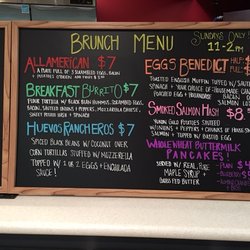 BRUNCH MENU
SUNDAYS ONLY
11-2
ALL AMERICAN $7
A PLATE FULL OF 2 SCRAMBLED EGGS, BACON
POTATOES
BREAKFAST BURRITO $7
FLOUR TORTILLA w/ BLACK BEAN HUMMUS, SCRAMBLED EGGS,
BACON, SAUTEED ONIONS & PEPPERS, MOZZARELLA CHEESE,
SWEET POTATO HASH & SPINACH
HUEVOS RANCHEROS $7
SPICED BLACK BEANS w/ COCONUT OVER
CORN TORTILLAS STUFFED w/ MOZZERELLA
TOPPED w/ 1 OR 2 EGGS & ENCHILADA
SAUCE!
EGGS BENEDICT
HALF
FULL
TOASTED ENGLISH MUFFIN TOPPED w/ SAUTEED
SPINACH & YOUR CHOICE OF
POACHED EGG & HOLLANDAISE
HAM
BACON
SALMON
SMOKED SALMON HASH $8
YUKON GOLD POTATOES SAUTEED
w/ ONIONS & PEPPERS & CHUNKS OF HOUSE
SALMON w/ TOPPED w/ EGG
WHOLE WHEAT BUTTERMILK
PANCAKES!
SERVED w/ REAL, PURE
MAPLE SYRUP &
WHIPPED BUTTER